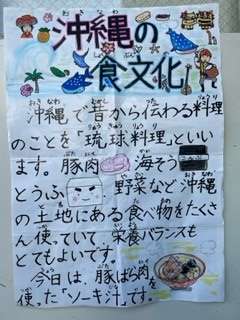 沖縄の
食文化
沖縄で昔から伝わる料理
のことを「琉球料理」といい
ます。豚肉 海そう
とうふ 野菜など沖縄
の土地にある食べ物をたくさ
ん使っていて、栄養バランスも
とてもよいです。
今日は、豚ばら肉を
使った「ソーキ汁」です。